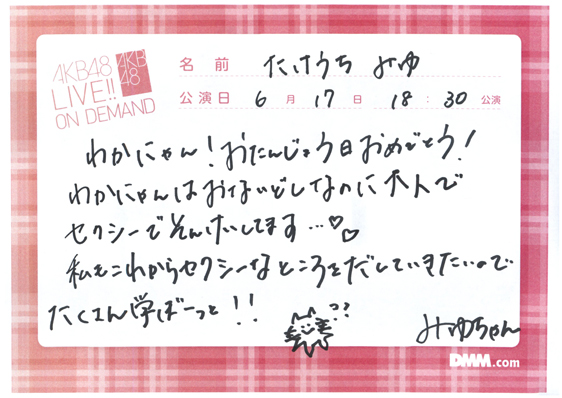 AKB48
LIVE!!
ON DEMAND
AKB
48
名前 たけうち みゆ
公演日 6月17日 18:30公演
わかにゃん!おたんじょう日おめでとう!
わかにゃんはおないどしなのに大人で
セクシーでそんけいしてます…♡♡
私もこれからセクシーなところをだしていきたいので
たくさん学ばーっと!!
??
みゆちゃん
DMM.com